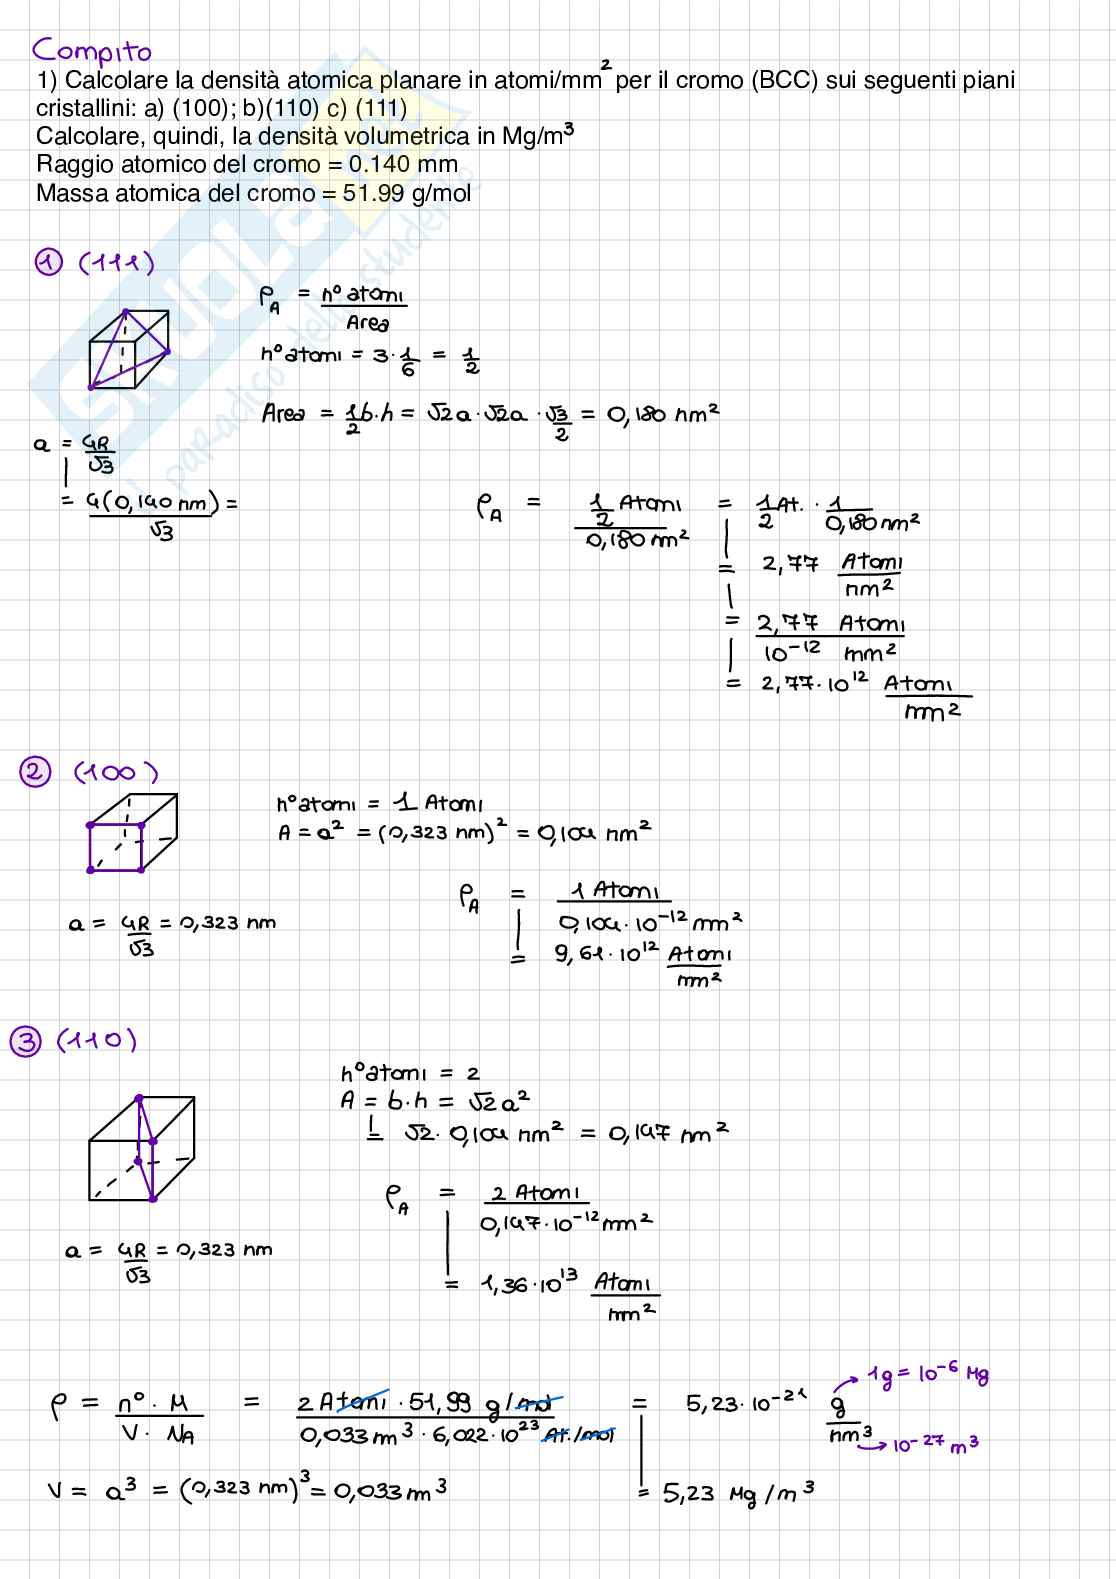 Compito
1) Calcolare la densità atomica planare in atomi/mm² per il cromo (BCC) sui seguenti piani
cristallini: a) (100); b)(110) c) (111)
Calcolare, quindi, la densità volumetrica in Mg/m³
Raggio atomico del cromo = 0.140 mm
Massa atomica del cromo = 51.99 g/mol
1 (111)
ρA = n° atomi / Area
n° atomi = 3 · 1/6 = 1/2
Area = 1/2 b·h = √2a · √2a · √3/2 = 0,180 nm²
a = 4R/√3
= 4(0,140 nm)/√3 =
ρA = 1/2 Atomi / 0,180 nm² = 1/2 At. · 1/0,180 nm²
= 2,77 Atomi/nm²
= 2,77 Atomi / 10⁻¹² mm²
= 2,77·10¹² Atomi/mm²
2 (100)
n° atomi = 1 Atomi
A = a² = (0,323 nm)² = 0,104 nm²
a = 4R/√3 = 0,323 nm
ρA = 1 Atomi / 0,104·10⁻¹² mm²
= 9,61·10¹² Atomi/mm²
3 (110)
n° atomi = 2
A = b·h = √2a²
= √2· 0,104 nm² = 0,147 nm²
ρA = 2 Atomi / 0,147·10⁻¹² mm²
a = 4R/√3 = 0,323 nm
= 1,36·10¹³ Atomi/mm²
ρ = n°·M / V·NA = 2 Atomi · 51,99 g/mol / 0,033 m³ · 6,022·10²³ At./mol = 5,23·10⁻²¹ g/nm³
1g = 10⁻⁶ Mg
10⁻²⁷ m³
V = a³ = (0,323 nm)³ = 0,033 m³
= 5,23 Mg/m³
SKUOLA.net
il paradiso dello studente